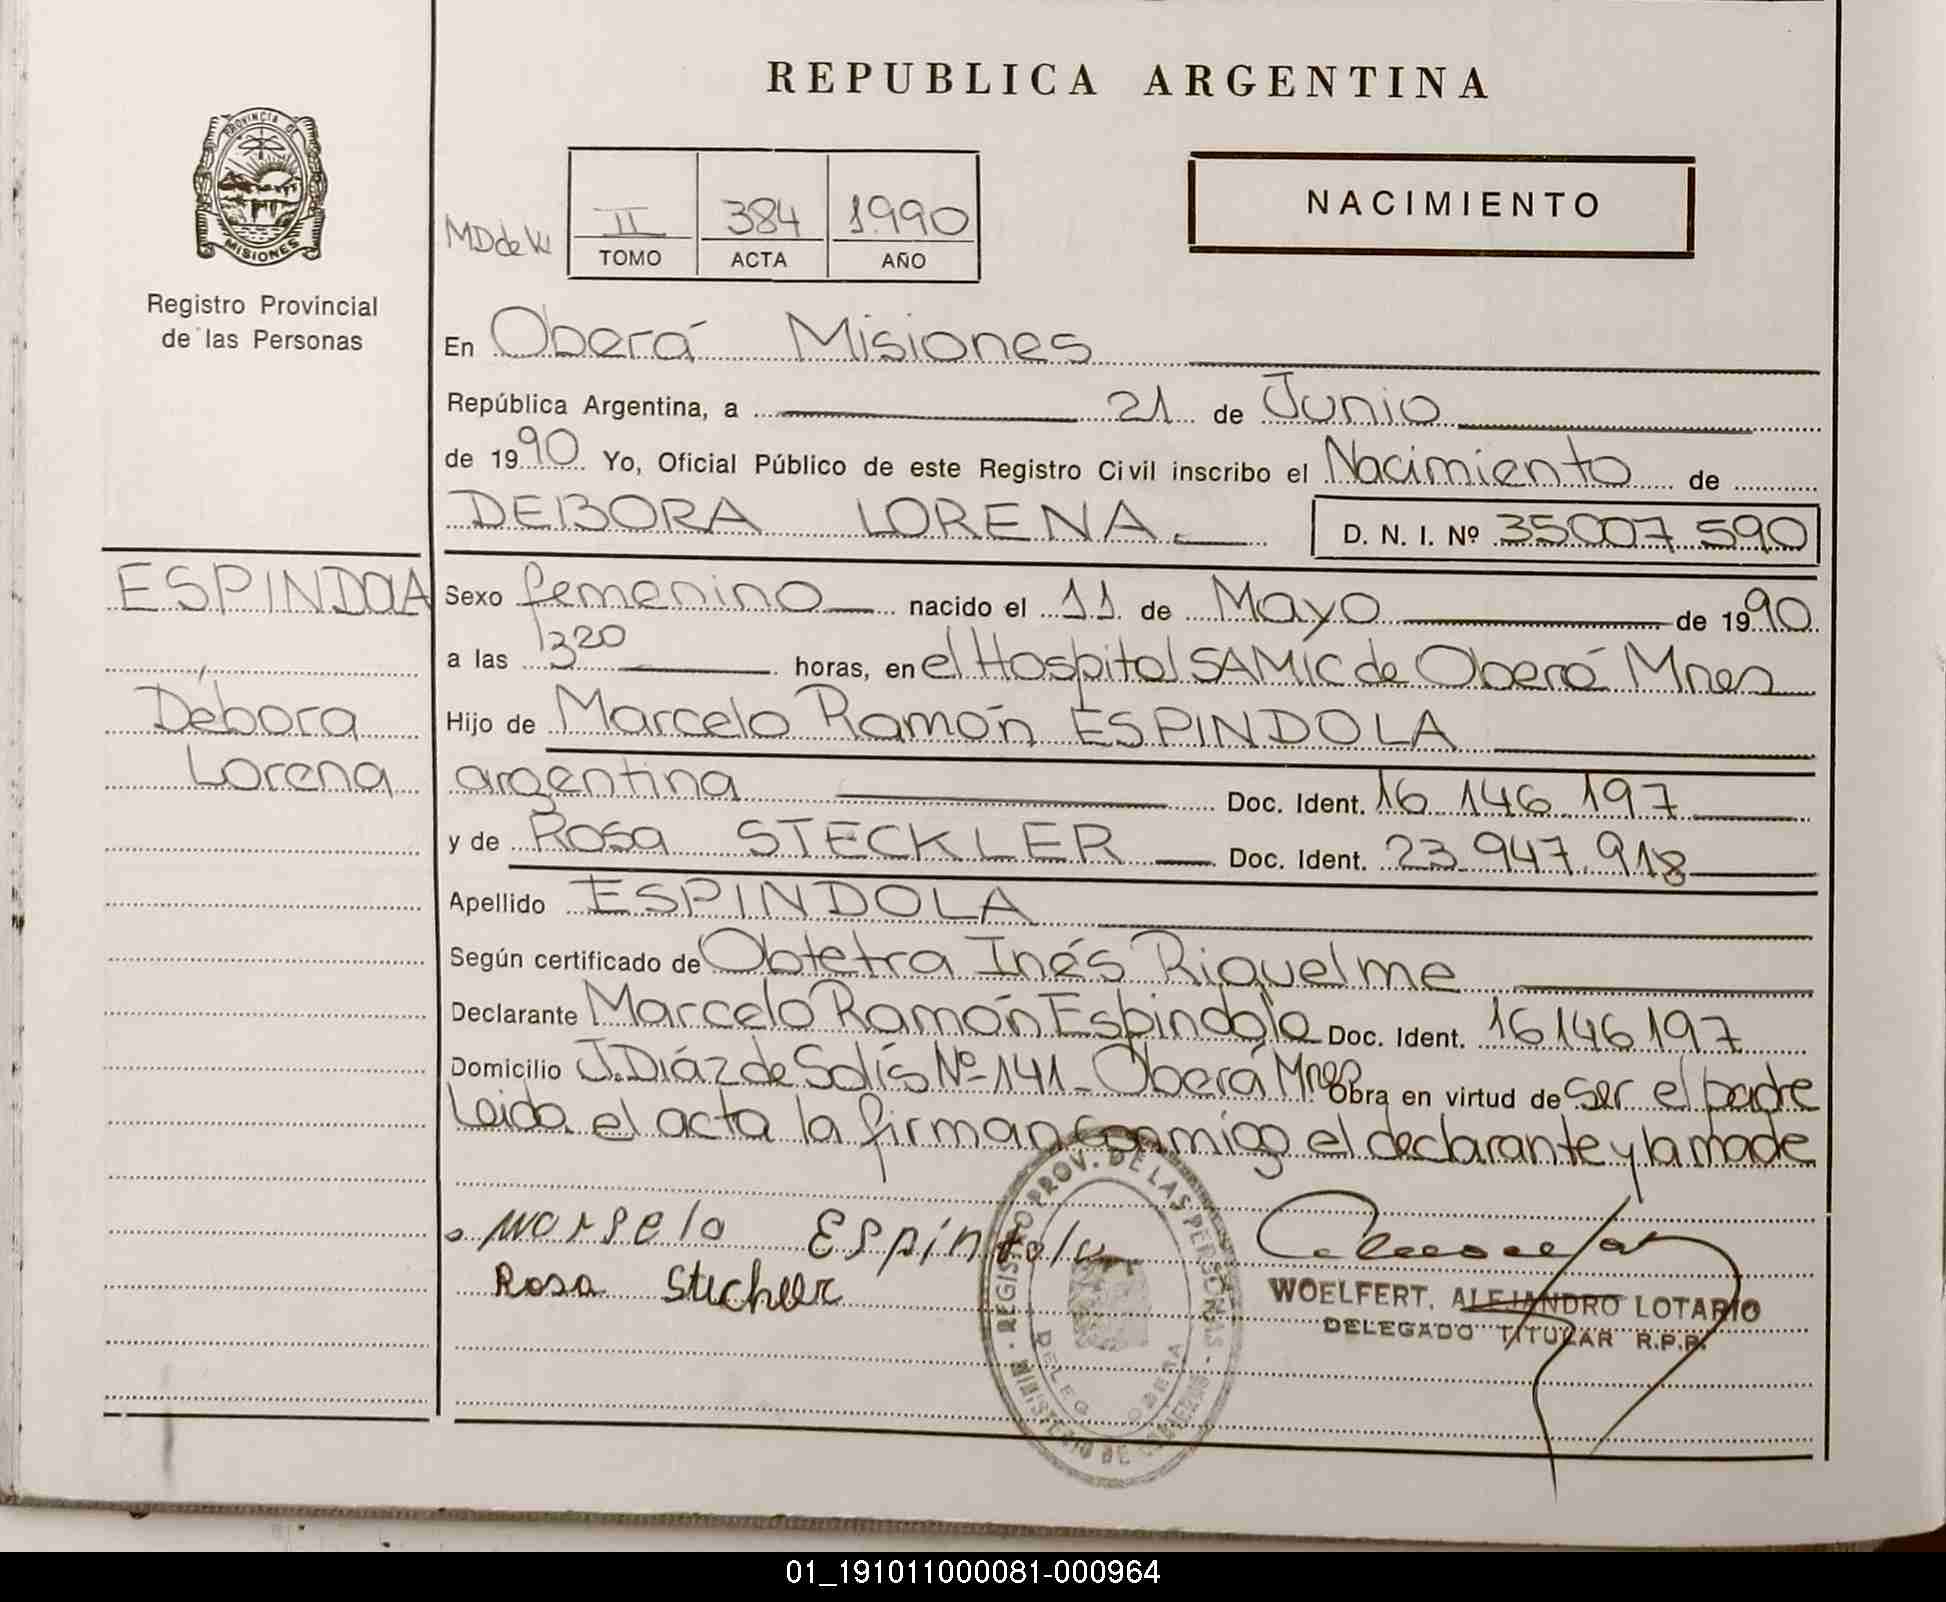 REPUBLICA ARGENTINA
PROVINCIA DE
MISIONES
Registro Provincial
de las Personas
NACIMIENTO
II 384 1.990
TOMO ACTA AÑO
En Oberá Misiones
República Argentina, a 21 de Junio
de 1990 Yo, Oficial Público de este Registro Civil inscribo el Nacimiento de
DEBORA LORENA D. N. I. Nº 35007.590
ESPINDOLA
Débora
Lorena
Sexo femenino nacido el 11 de Mayo de 1990
a las 1320 horas, en el Hospital SAMIC de Oberá Mnes
Hijo de Marcelo Ramón ESPINDOLA
argentina Doc. Ident. 16.146.197
y de Rosa STECKLER Doc. Ident. 23.947.918
Apellido ESPINDOLA
Según certificado de Obtetra Inés Riquelme
Declarante Marcelo Ramón Espindola Doc. Ident. 16146197
Domicilio J. Diáz de Solís Nº 141 - Oberá Mnes Obra en virtud de ser el padre
Leida el acta la firman conmigo el declarante y la made
Marselo Espindola
Rosa
REGISTRO PROV. DE LAS PERSONAS
MINISTERIO DE GOBIERNO
DELEG. OBERA
WOELFERT, ALEJANDRO LOTARIO
DELEGADO TITULAR R.P.P.
01_191011000081-000964